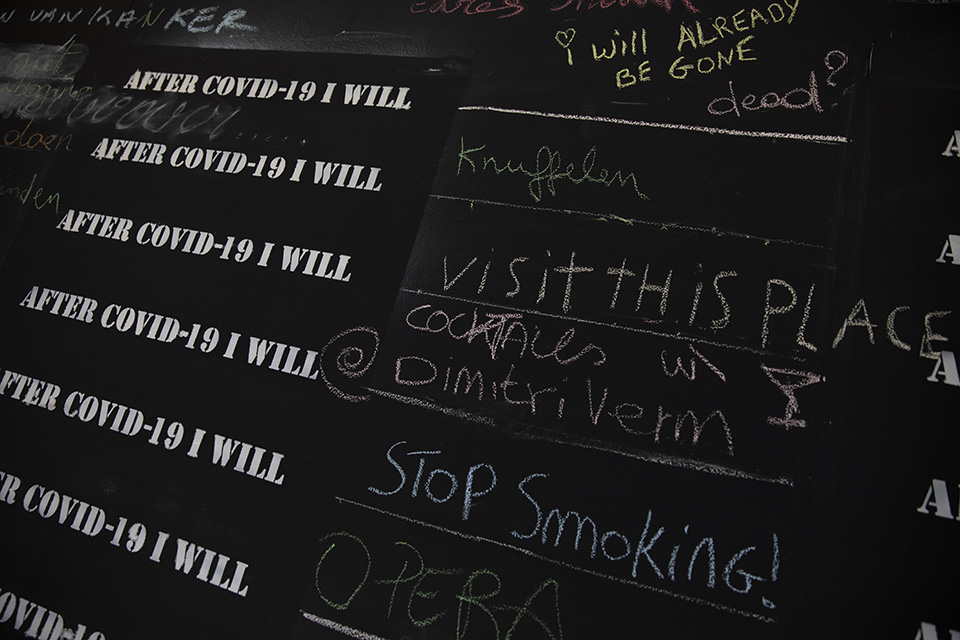 VAN KANKER
I will ALREADY
BE GONE
dead?
AFTER COVID-19 I WILL
AFTER COVID-19 I WILL
Knuffelen
AFTER COVID-19 I WILL
VISIT THIS PLACE
AFTER COVID-19 I WILL
COCKTAILES W\
@DimitriVerm
AFTER COVID-19 I WILL
STOP Smmoking!
COVID-19 I WILL
OPERA
COVID-19
doen